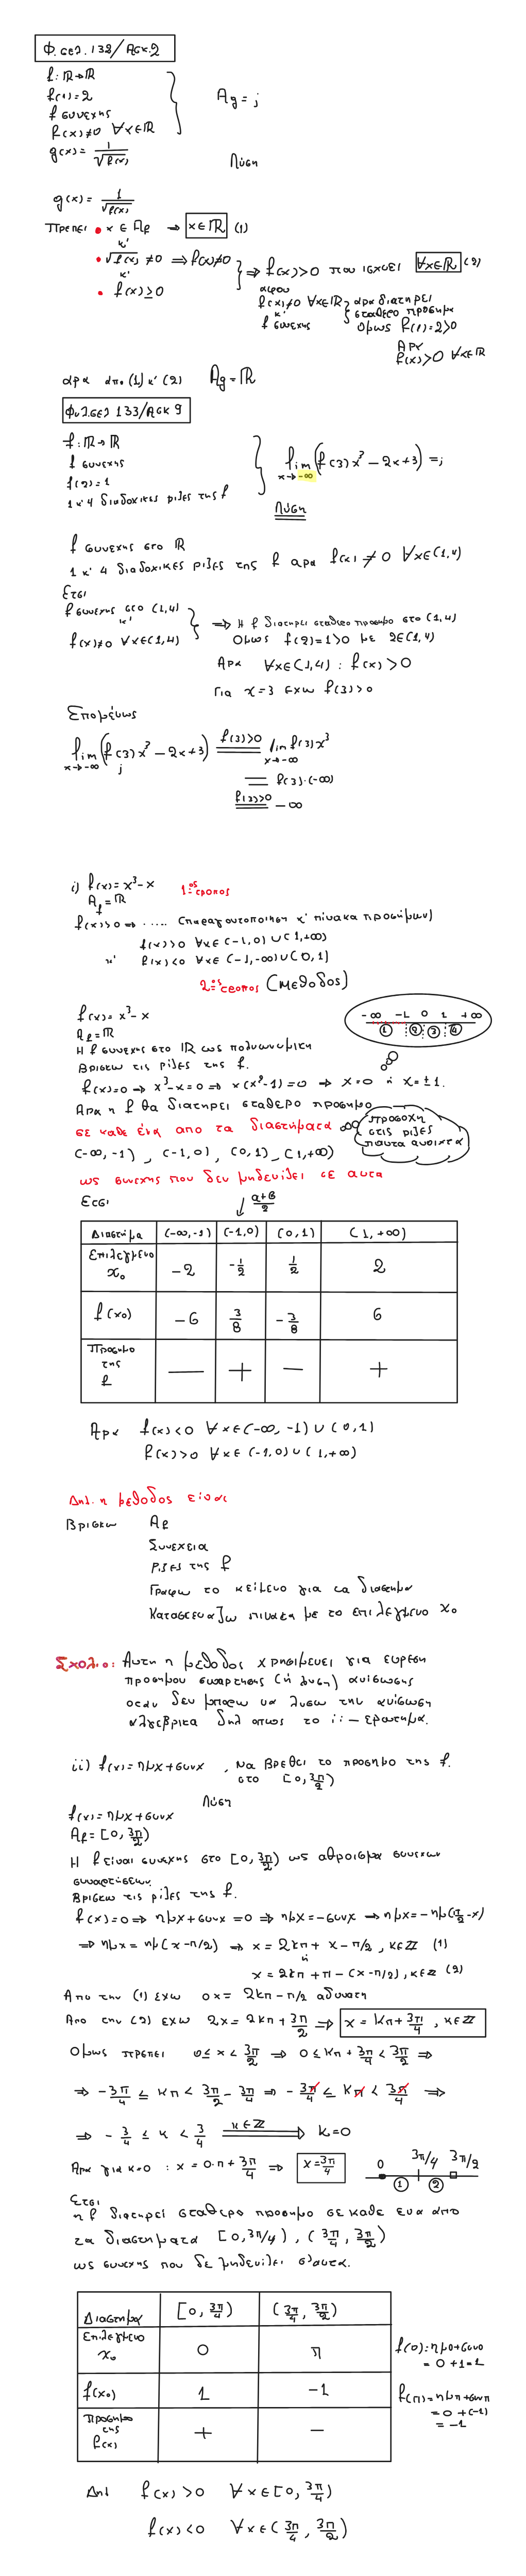 Φ. σελ. 132/Ασκ.2
f: ℝ→ℝ
f(1)=2
f συνεχης
f(x)≠0 ∀x∈ℝ
g(x)= 1/√f(x)
A_g = ;
Λύση
g(x)= 1/√f(x)
Πρεπει • x ∈ A_f ⇒ x∈ℝ (1)
κ'
• √f(x) ≠0 ⇒ f(x)≠0
κ'
• f(x)≥0
⇒ f(x)>0 που ισχυει ∀x∈ℝ (2)
αφου
f(x)≠0 ∀x∈ℝ
κ'
f συνεχης
αρα διατηρει
σταθερο προσημο
ομως f(1)=2>0
Αρα
f(x)>0 ∀x∈ℝ
αρα απο (1) κ' (2) A_g=ℝ
Φυλ.σελ 133/Ασκ 9
f: ℝ→ℝ
f συνεχης
f(2)=1
1 κ' 4 διαδοχικες ριζες της f
lim x→-∞ (f(3)x³-2x+3) =;
Λύση
f συνεχης στο ℝ
1 κ' 4 διαδοχικες ριζες της f αρα f(x) ≠0 ∀x∈(1,4)
Ετσι
f συνεχης στο (1,4)
κ'
f(x)≠0 ∀x∈(1,4)
⇒ Η f διατηρει σταθερο προσημο στο (1,4)
Ομως f(2)=1>0 με 2∈(1,4)
Αρα ∀x∈(1,4): f(x)>0
Για x=3 εχω f(3)>0
Επομένως
lim x→-∞ (f(3)x³-2x+3) = f(3)>0 lim x→-∞ f(3)x³
= f(3)·(-∞)
f(3)>0 = -∞
i) f(x)= x³-x
1ος τροπος
A_f=ℝ
f(x)>0 ⇒ ..... (παραγοντοποιηση κ' πίνακα προσήμων)
f(x)>0 ∀x∈(-1,0)∪(1,+∞)
κ' f(x)<0 ∀x∈(-1,-∞)∪(0,1)
2ος τροπος (μεθοδος)
f(x)=x³-x
A_f=ℝ
-∞ -1 0 1 +∞
① ② ③ ④
Η f συνεχης στο ℝ ως πολυωνυμικη
Βρισκω τις ρίζες της f.
f(x)=0 ⇒ x³-x=0 ⇒ x(x²-1)=0 ⇒ x=0 ή x=±1.
Αρα η f θα διατηρει σταθερο προσημο
σε καθε ένα απο τα διαστήματα
(-∞,-1), (-1,0), (0,1), (1,+∞)
προσοχη
στις ριζες
παντα ανοιχτα
ως συνεχης που δεν μηδενιζει σε αυτα
Ετσι
α+β/2
Διαστημα (-∞,-1) (-1,0) (0,1) (1,+∞)
Επιλεγμενο x₀ -2 -1/2 1/2 2
f(x₀) -6 3/8 -3/8 6
Προσημο της f − + − +
Αρα f(x)<0 ∀x∈(-∞,-1)∪(0,1)
f(x)>0 ∀x∈(-1,0)∪(1,+∞)
Δηλ. η μεθοδος είναι
Βρισκω A_f
Συνεχεια
Ριζες της f
Γραφω το κείμενο για τα διαστημα
Κατασκευαζω πινακα με το επιλεγμενο x₀
Σχολιο: Αυτη η μεθοδος χρησιμευει για ευρεση
προσημου συναρτησης (ή λυση) ανίσωσης
οταν δεν μπορω να λυσω την ανίσωση
αλγεβρικα δηλ οπως το ii-ερωτημα.
ii) f(x)=ημx+συνx , να βρεθει το προσημο της f.
στο [0,3π/2)
Λύση
f(x)=ημx+συνx
A_f=[0,3π/2)
Η f είναι συνεχης στο [0,3π/2) ως αθροισμα συνεχων
συναρτησεων.
Βρισκω τις ρίζες της f.
f(x)=0 ⇒ ημx+συνx=0 ⇒ ημx=-συνx ⇒ ημx=-ημ(π/2-x)
⇒ ημx=ημ(x-π/2) ⇒ x=2κπ+x-π/2, κ∈ℤ (1)
ή
x=2κπ+π-(x-π/2), κ∈ℤ (2)
Απο την (1) εχω 0x=2κπ-π/2 αδυνατη
Απο την (2) εχω 2x=2κπ+3π/2 ⇒ x=κπ+3π/4, κ∈ℤ
Ομως πρεπει 0≤x<3π/2 ⇒ 0≤κπ+3π/4<3π/2 ⇒
⇒ -3π/4 ≤ κπ < 3π/2-3π/4 ⇒ -3π/4 ≤ κπ < 3π/4 ⇒
⇒ -3/4 ≤ κ < 3/4 κ∈ℤ ⇒ κ=0
Αρα για κ=0: x=0·π+3π/4 ⇒ x=3π/4
0 3π/4 3π/2
① ②
Ετσι
η f διατηρεί σταθερο προσημο σε καθε ενα απο
τα διαστηματα [0,3π/4), (3π/4,3π/2)
ως συνεχης που δε μηδενιζει σ'αυτα.
Διαστημα [0,3π/4) (3π/4,3π/2)
Επιλεγμενο x₀ 0 π
f(x₀) 1 -1
Προσημο της f(x) + −
f(0)=ημ0+συν0
=0+1=1
f(π)=ημπ+συνπ
=0+(-1)
=-1
Δηλ f(x)>0 ∀x∈[0,3π/4)
f(x)<0 ∀x∈(3π/4,3π/2)